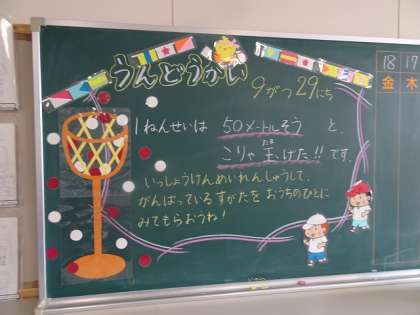 うんどうかい
9がつ29にち
1ねんせいは 50メートルそう と、
こりゃ玉けた!! です。
いっしょうけんめいれんしゅうして、
がんばっているすがたを おうちのひとに
みてもらおうね!
18 17
金 木